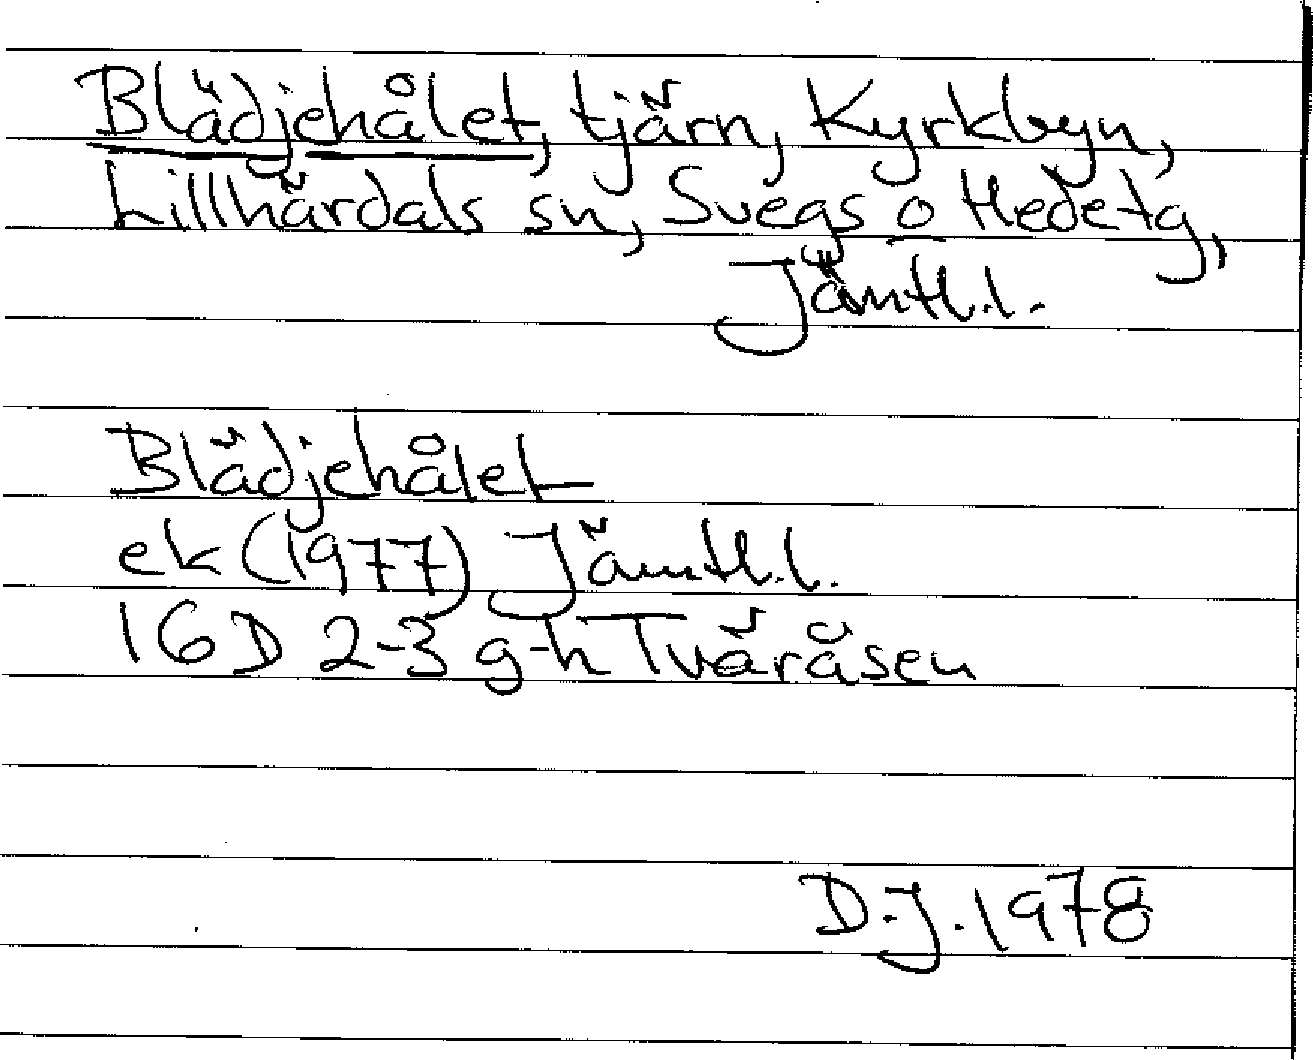 Blädjehålet, tjärn, Kyrkbyn,
Lillhärdals sn, Svegs o Hedetg,
Jämtl.l.
Blädjehålet
ek (1977) Jämtl.l.
16D 2-3 g-h Tväråsen
D.J. 1978